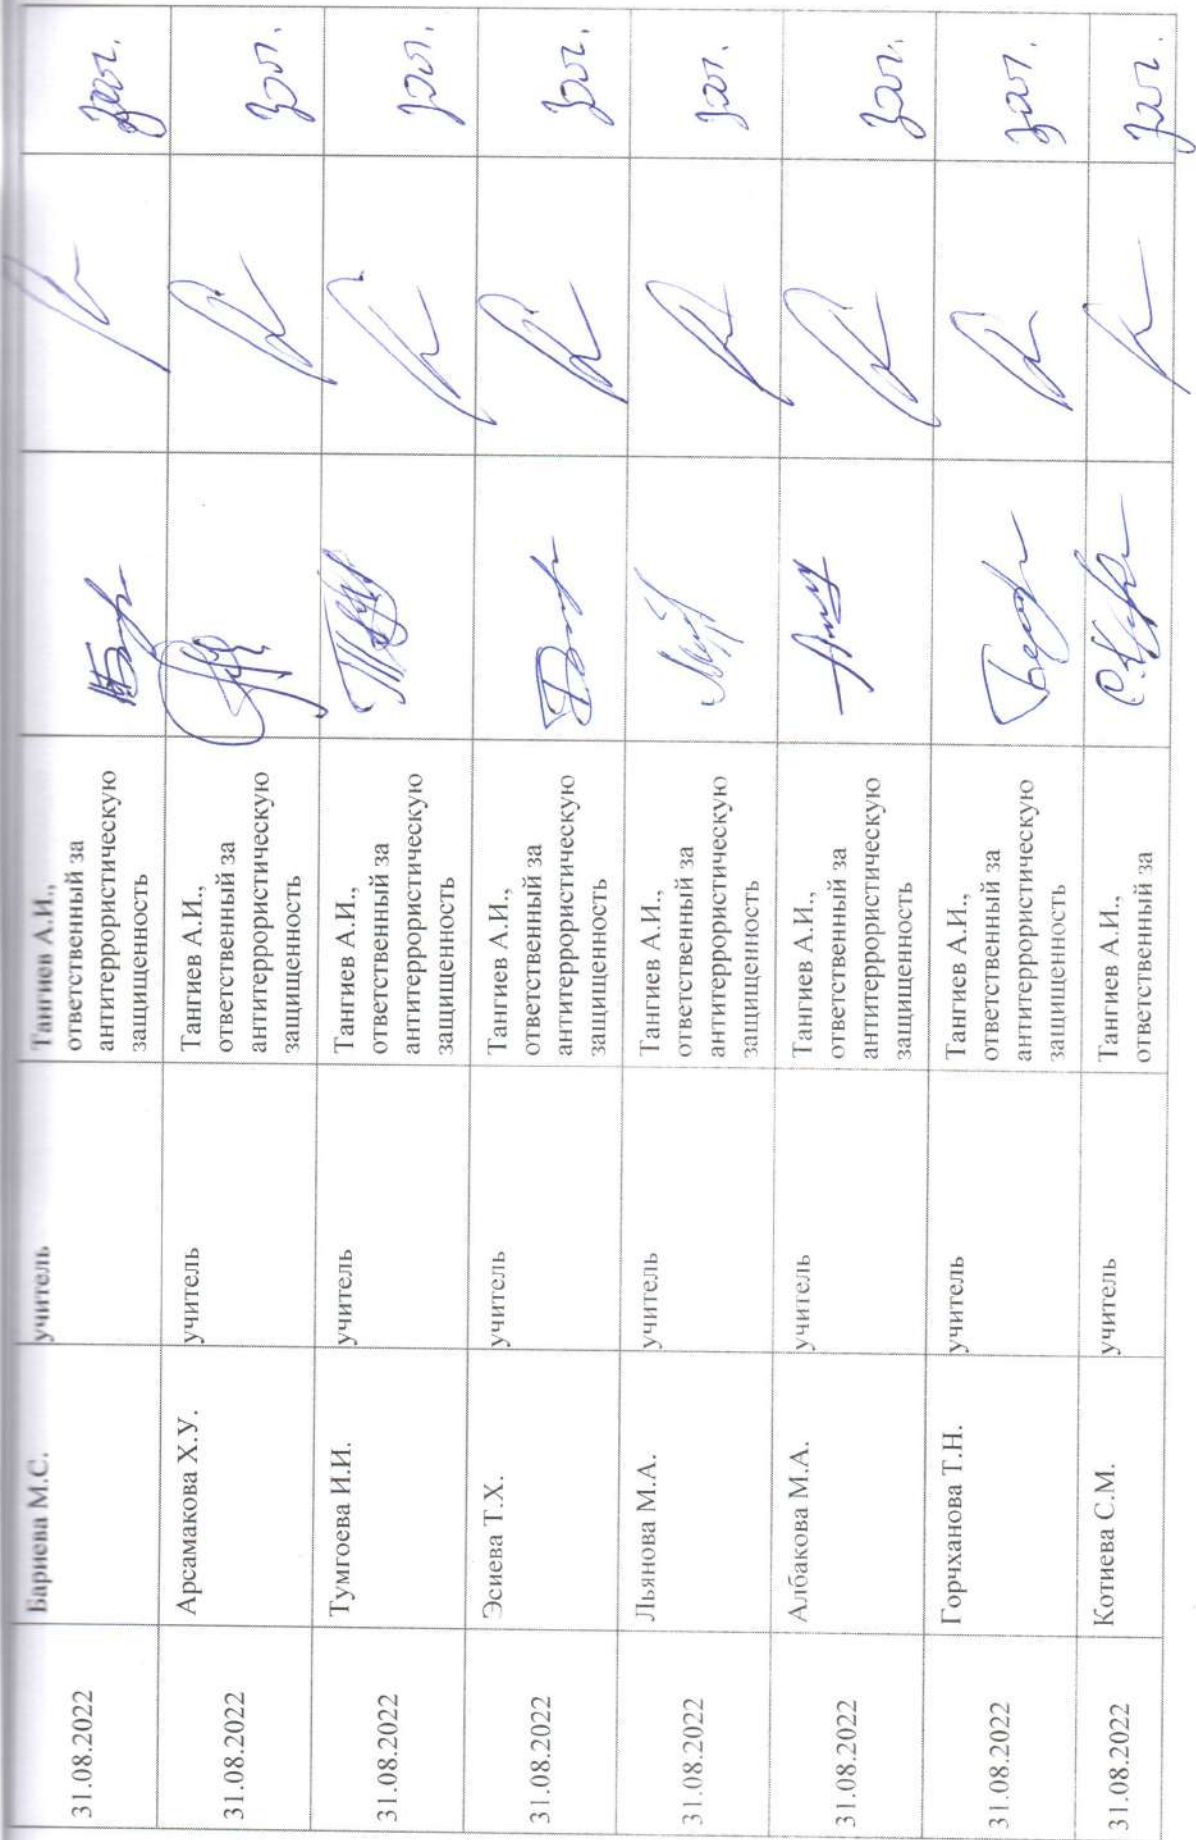 31.08.2022
Бариева М.С.
учитель
Тангиев А.И.,
ответственный за
антитеррористическую
защищенность
зач.
31.08.2022
Арсамакова Х.У.
учитель
Тангиев А.И.,
ответственный за
антитеррористическую
защищенность
зач.
31.08.2022
Тумгоева И.И.
учитель
Тангиев А.И.,
ответственный за
антитеррористическую
защищенность
зач.
31.08.2022
Эсиева Т.Х.
учитель
Тангиев А.И.,
ответственный за
антитеррористическую
защищенность
зач.
31.08.2022
Льянова М.А.
учитель
Тангиев А.И.,
ответственный за
антитеррористическую
защищенность
зач.
31.08.2022
Албакова М.А.
учитель
Тангиев А.И.,
ответственный за
антитеррористическую
защищенность
зач.
31.08.2022
Горчханова Т.Н.
учитель
Тангиев А.И.,
ответственный за
антитеррористическую
защищенность
зач.
31.08.2022
Котиева С.М.
учитель
Тангиев А.И.,
ответственный за
зач.